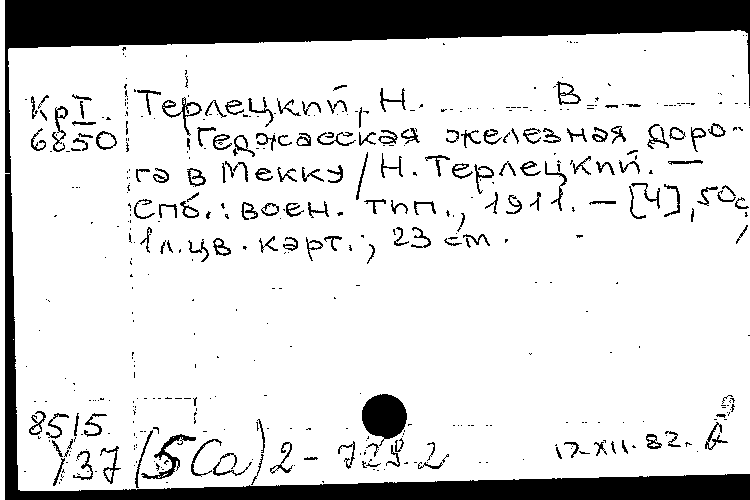 КрI. Терлецкий, Н. В.
6850 Геджасская железная доро-
га в Мекку / Н. Терлецкий. —
Спб.: воен. тип., 1911. — [4], 50с,
1л.цв. карт.; 23 см.
85/5
У37(5Са)2-729.2 17.XII.82.